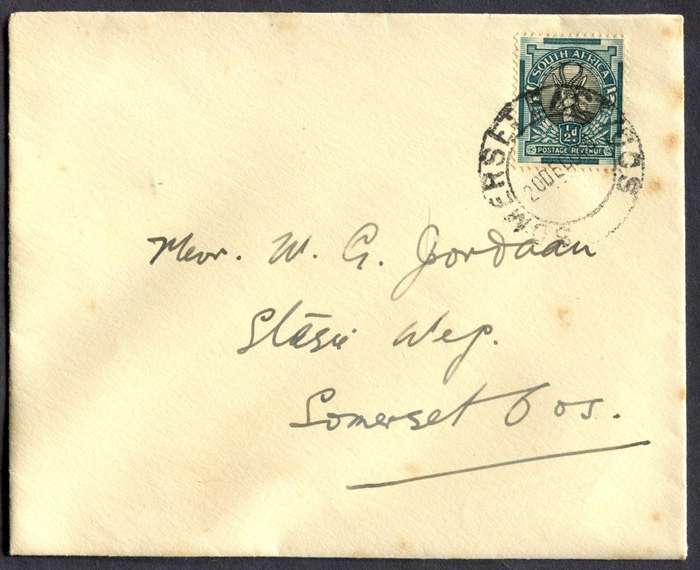 SOUTH AFRICA
½d
POSTAGE REVENUE
SOMERSET
20 DEC
Mevr. W. G. Jordaan
Stasie Weg.
Somerset Oos.